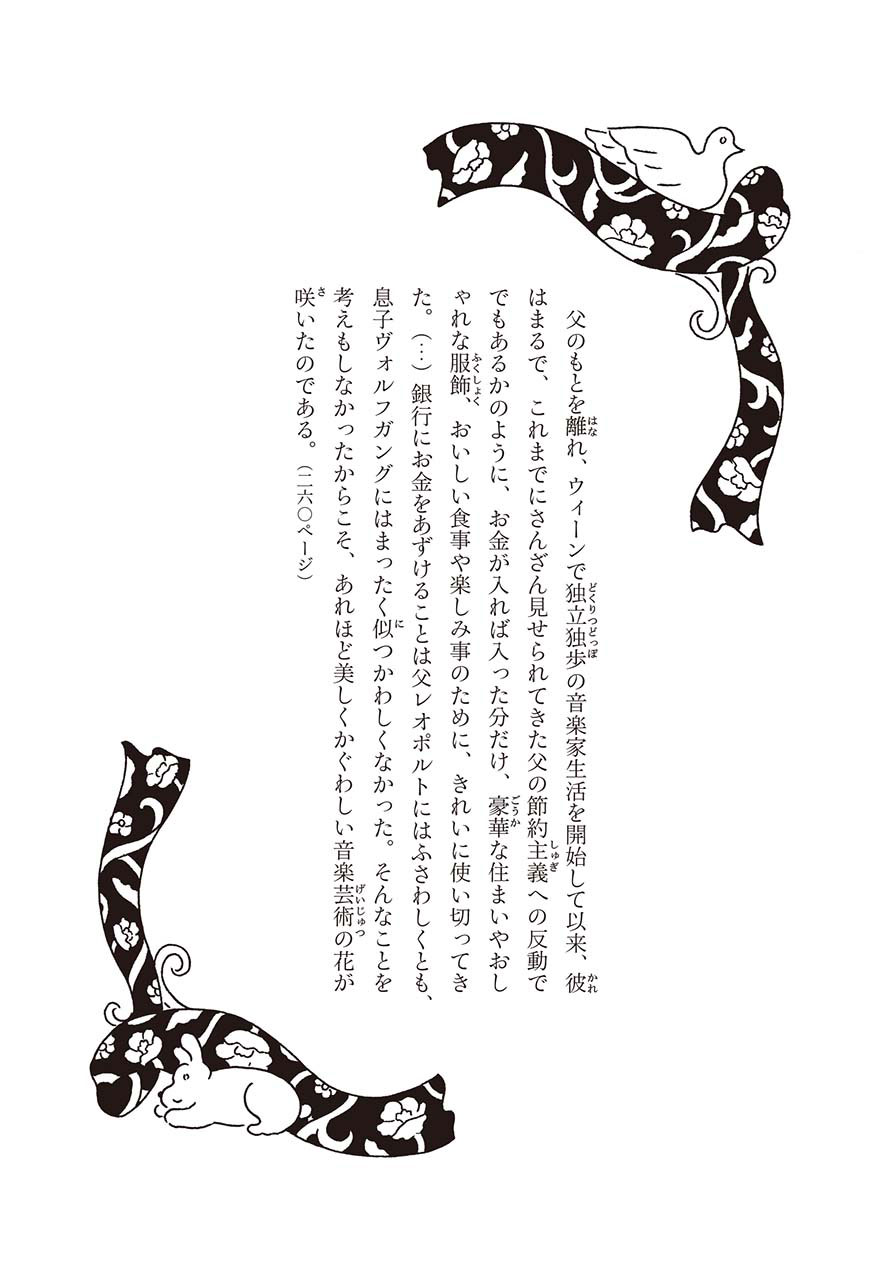 父のもとを離れ、ウィーンで独立独歩の音楽家生活を開始して以来、彼
はまるで、これまでにさんざん見せられてきた父の節約主義への反動で
でもあるかのように、お金が入れば入った分だけ、豪華な住まいやおし
ゃれな服飾、おいしい食事や楽しみ事のために、きれいに使い切ってき
た。(…)銀行にお金をあずけることは父レオポルトにはふさわしくとも、
息子ヴォルフガングにはまったく似つかわしくなかった。そんなことを
考えもしなかったからこそ、あれほど美しくかぐわしい音楽芸術の花が
咲いたのである。(二六〇ページ)